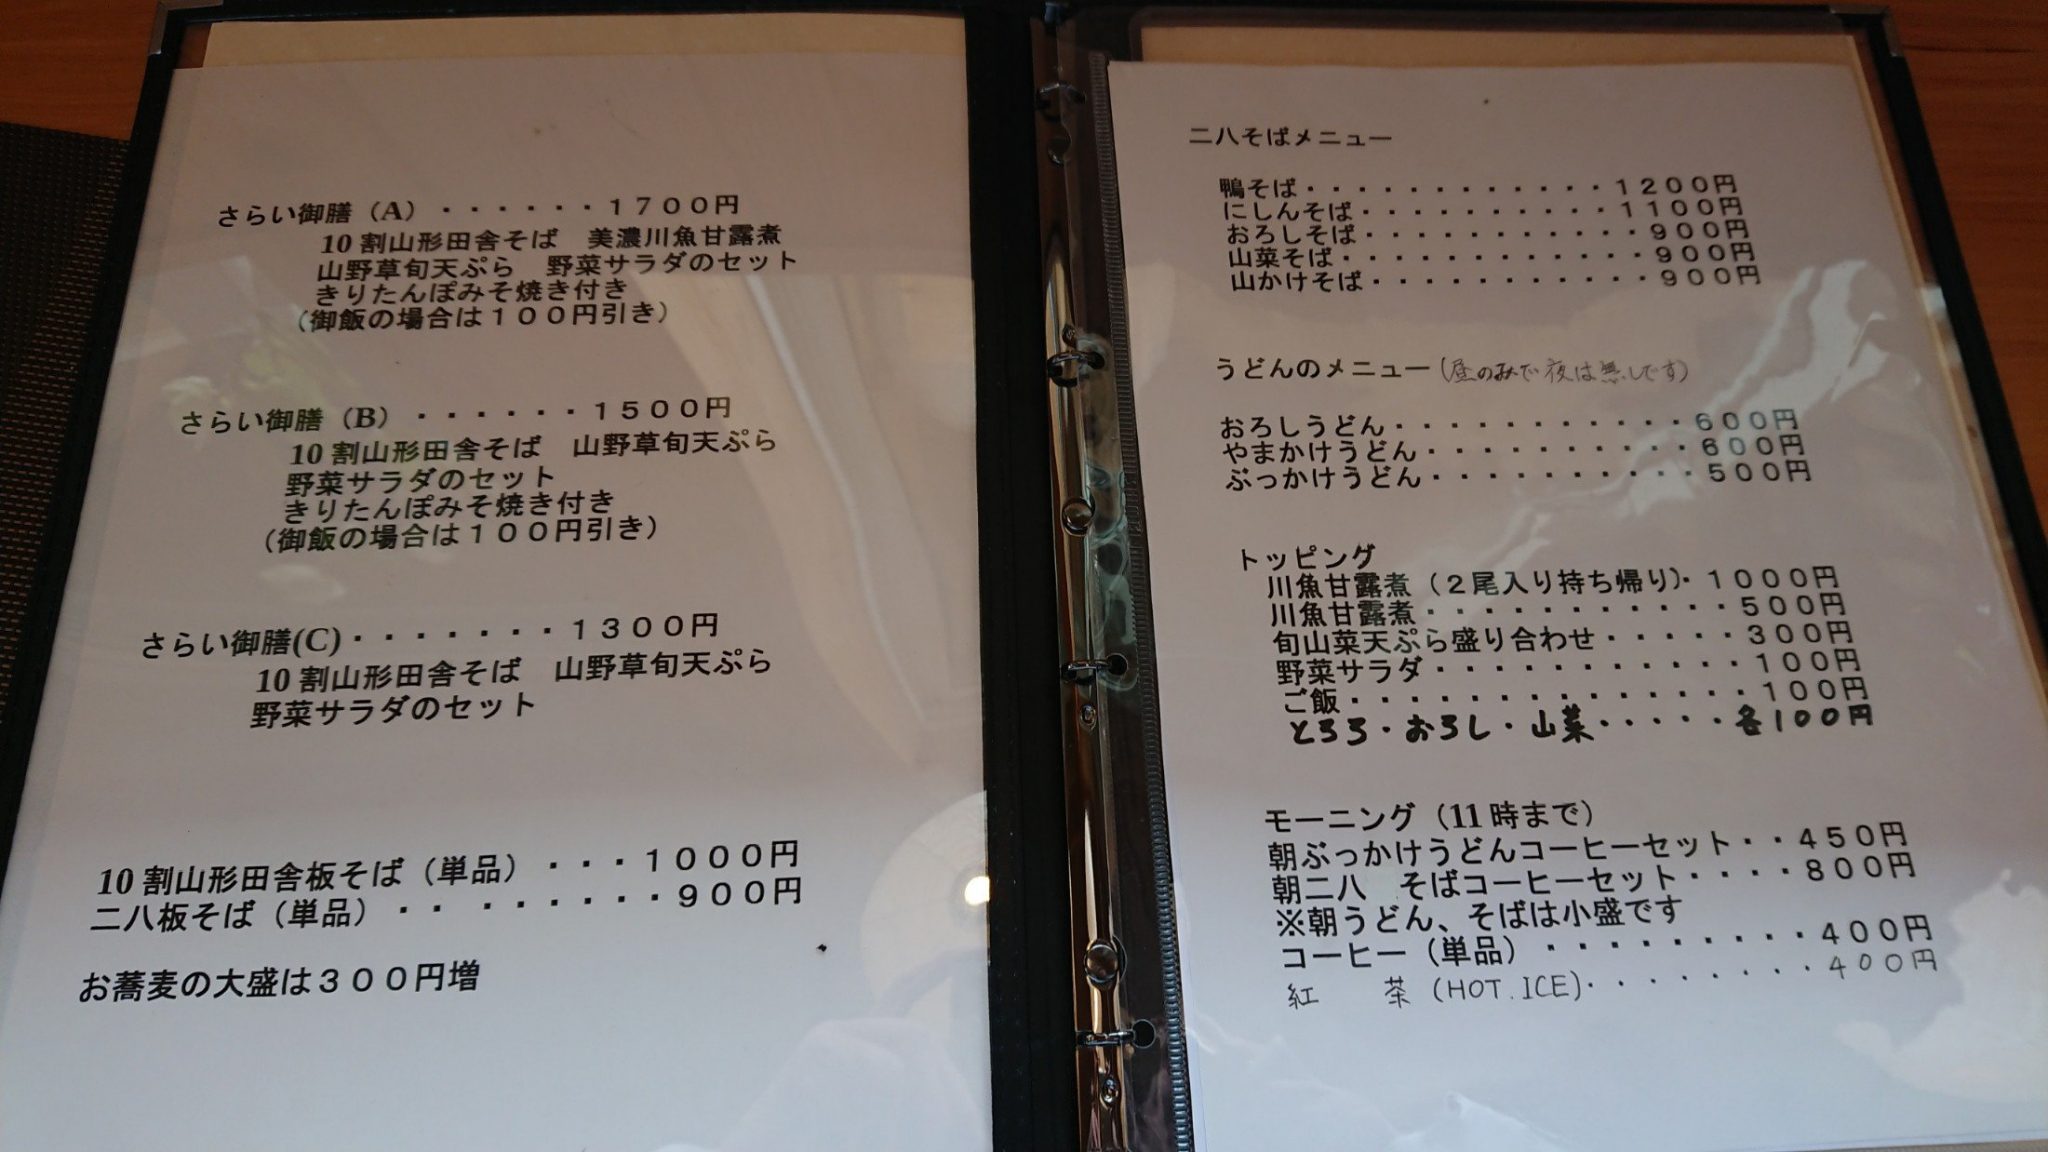 さらい御膳（A）・・・・・・１７００円
10割山形田舎そば　美濃川魚甘露煮
山野草旬天ぷら　野菜サラダのセット
きりたんぽみそ焼き付き
（御飯の場合は１００円引き）
さらい御膳（B）・・・・・・１５００円
10割山形田舎そば　山野草旬天ぷら
野菜サラダのセット
きりたんぽみそ焼き付き
（御飯の場合は１００円引き）
さらい御膳(C)・・・・・・・１３００円
10割山形田舎そば　山野草旬天ぷら
野菜サラダのセット
10割山形田舎板そば（単品）・・・１０００円
二八板そば（単品）・・ ・・・・・・９００円
お蕎麦の大盛は３００円増
二八そばメニュー
鴨そば・・・・・・・・・・・・１２００円
にしんそば・・・・・・・・・・１１００円
おろしそば・・・・・・・・・・・９００円
山菜そば・・・・・・・・・・・・９００円
山かけそば・・・・・・・・・・・９００円
うどんのメニュー（昼のみで夜は無しです）
おろしうどん・・・・・・・・・・・６００円
やまかけうどん・・・・・・・・・・６００円
ぶっかけうどん・・・・・・・・・・５００円
トッピング
川魚甘露煮（２尾入り持ち帰り）・１０００円
川魚甘露煮・・・・・・・・・・・・５００円
旬山菜天ぷら盛り合わせ・・・・・３００円
野菜サラダ・・・・・・・・・・・・１００円
ご飯・・・・・・・・・・・・・・・１００円
とろろ・おろし・山菜・・・・・各１００円
モーニング（11時まで）
朝ぶっかけうどんコーヒーセット・・４５０円
朝二八　そばコーヒーセット・・・・８００円
※朝うどん、そばは小盛です
コーヒー（単品）・・・・・・・・・４００円
紅　　茶（HOT.ICE)・・・・・・・・４００円